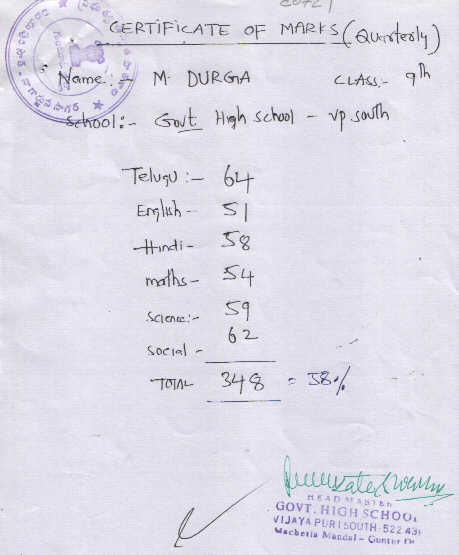 CERTIFICATE OF MARKS (Quarterly)
Name :- M. DURGA CLASS:- 9th
School:- Govt High school - vp south
Telugu :- 64
English - 51
Hindi - 58
maths - 54
Science:- 59
social - 62
TOTAL 348 = 58%
HEAD MASTER
GOVT. HIGH SCHOOL
VIJAYAPURI SOUTH-522 43
Macherla Mandal - Guntur Dt